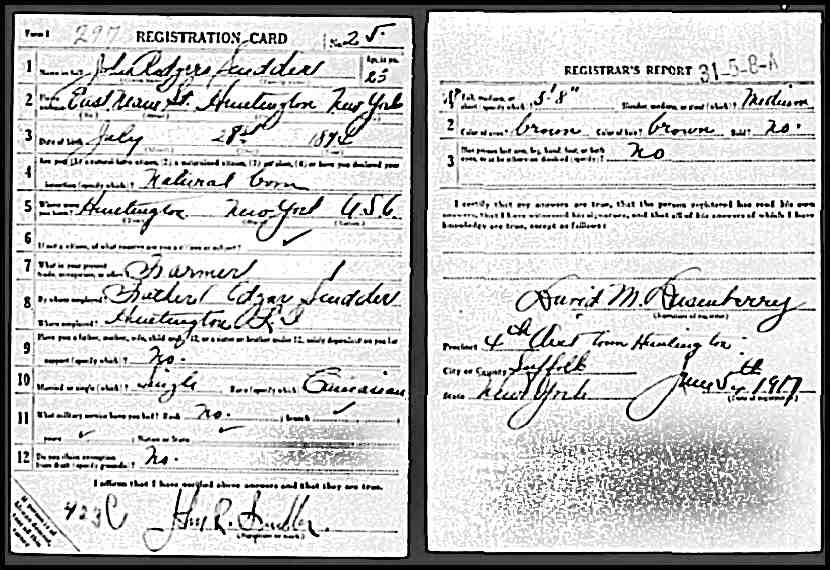 Form 1 297 REGISTRATION CARD No. 25
1 Name in full John Rodgers Scudder Age, in yrs. 23
2 East Neck St. Huntington New York
3 Date of birth July 28th 1894
4 Are you (1) a natural-born citizen, (2) a naturalized citizen, (3) an alien, (4) or have you declared your
intention (specify which)? Natural born
5 Where were you born? Huntington New York USA.
6 If not a citizen, of what country are you a citizen or subject? ✓
7 What is your present trade, occupation, or office? Farmer 1
8 By whom employed? Father Edgar Scudder
Where employed? Huntington L I
9 Have you a father, mother, wife, child under 12, or a sister or brother under 12, solely dependent on you for
support (specify which)? No.
10 Married or single (which)? Single Race (specify which)? Caucasian
11 What military service have you had? Rank No. ; branch ✓
years ✓ ; Nation or State ✓
12 Do you claim exemption from draft (specify grounds)? No.
I affirm that I have verified above answers and that they are true.
423 C John R. Scudder
(Signature or mark)
REGISTRAR'S REPORT 31-5-8-A
1 Tall, medium, or short (specify which)? 5'8" Slender, medium, or stout (which)? Medium
2 Color of eyes? brown Color of hair? brown Bald? No.
3 Has person lost arm, leg, hand, foot, or both eyes, or is he otherwise disabled (specify)? No
I certify that my answers are true, that the person registered has read his own
answers, that I have witnessed his signature, and that all of his answers of which I have
knowledge are true, except as follows:
David M. Dusenberry
(Signature of registrar)
Precinct 4th Dist Town Huntington
City or County Suffolk
State New York June 5th 1917
(Date of registration)